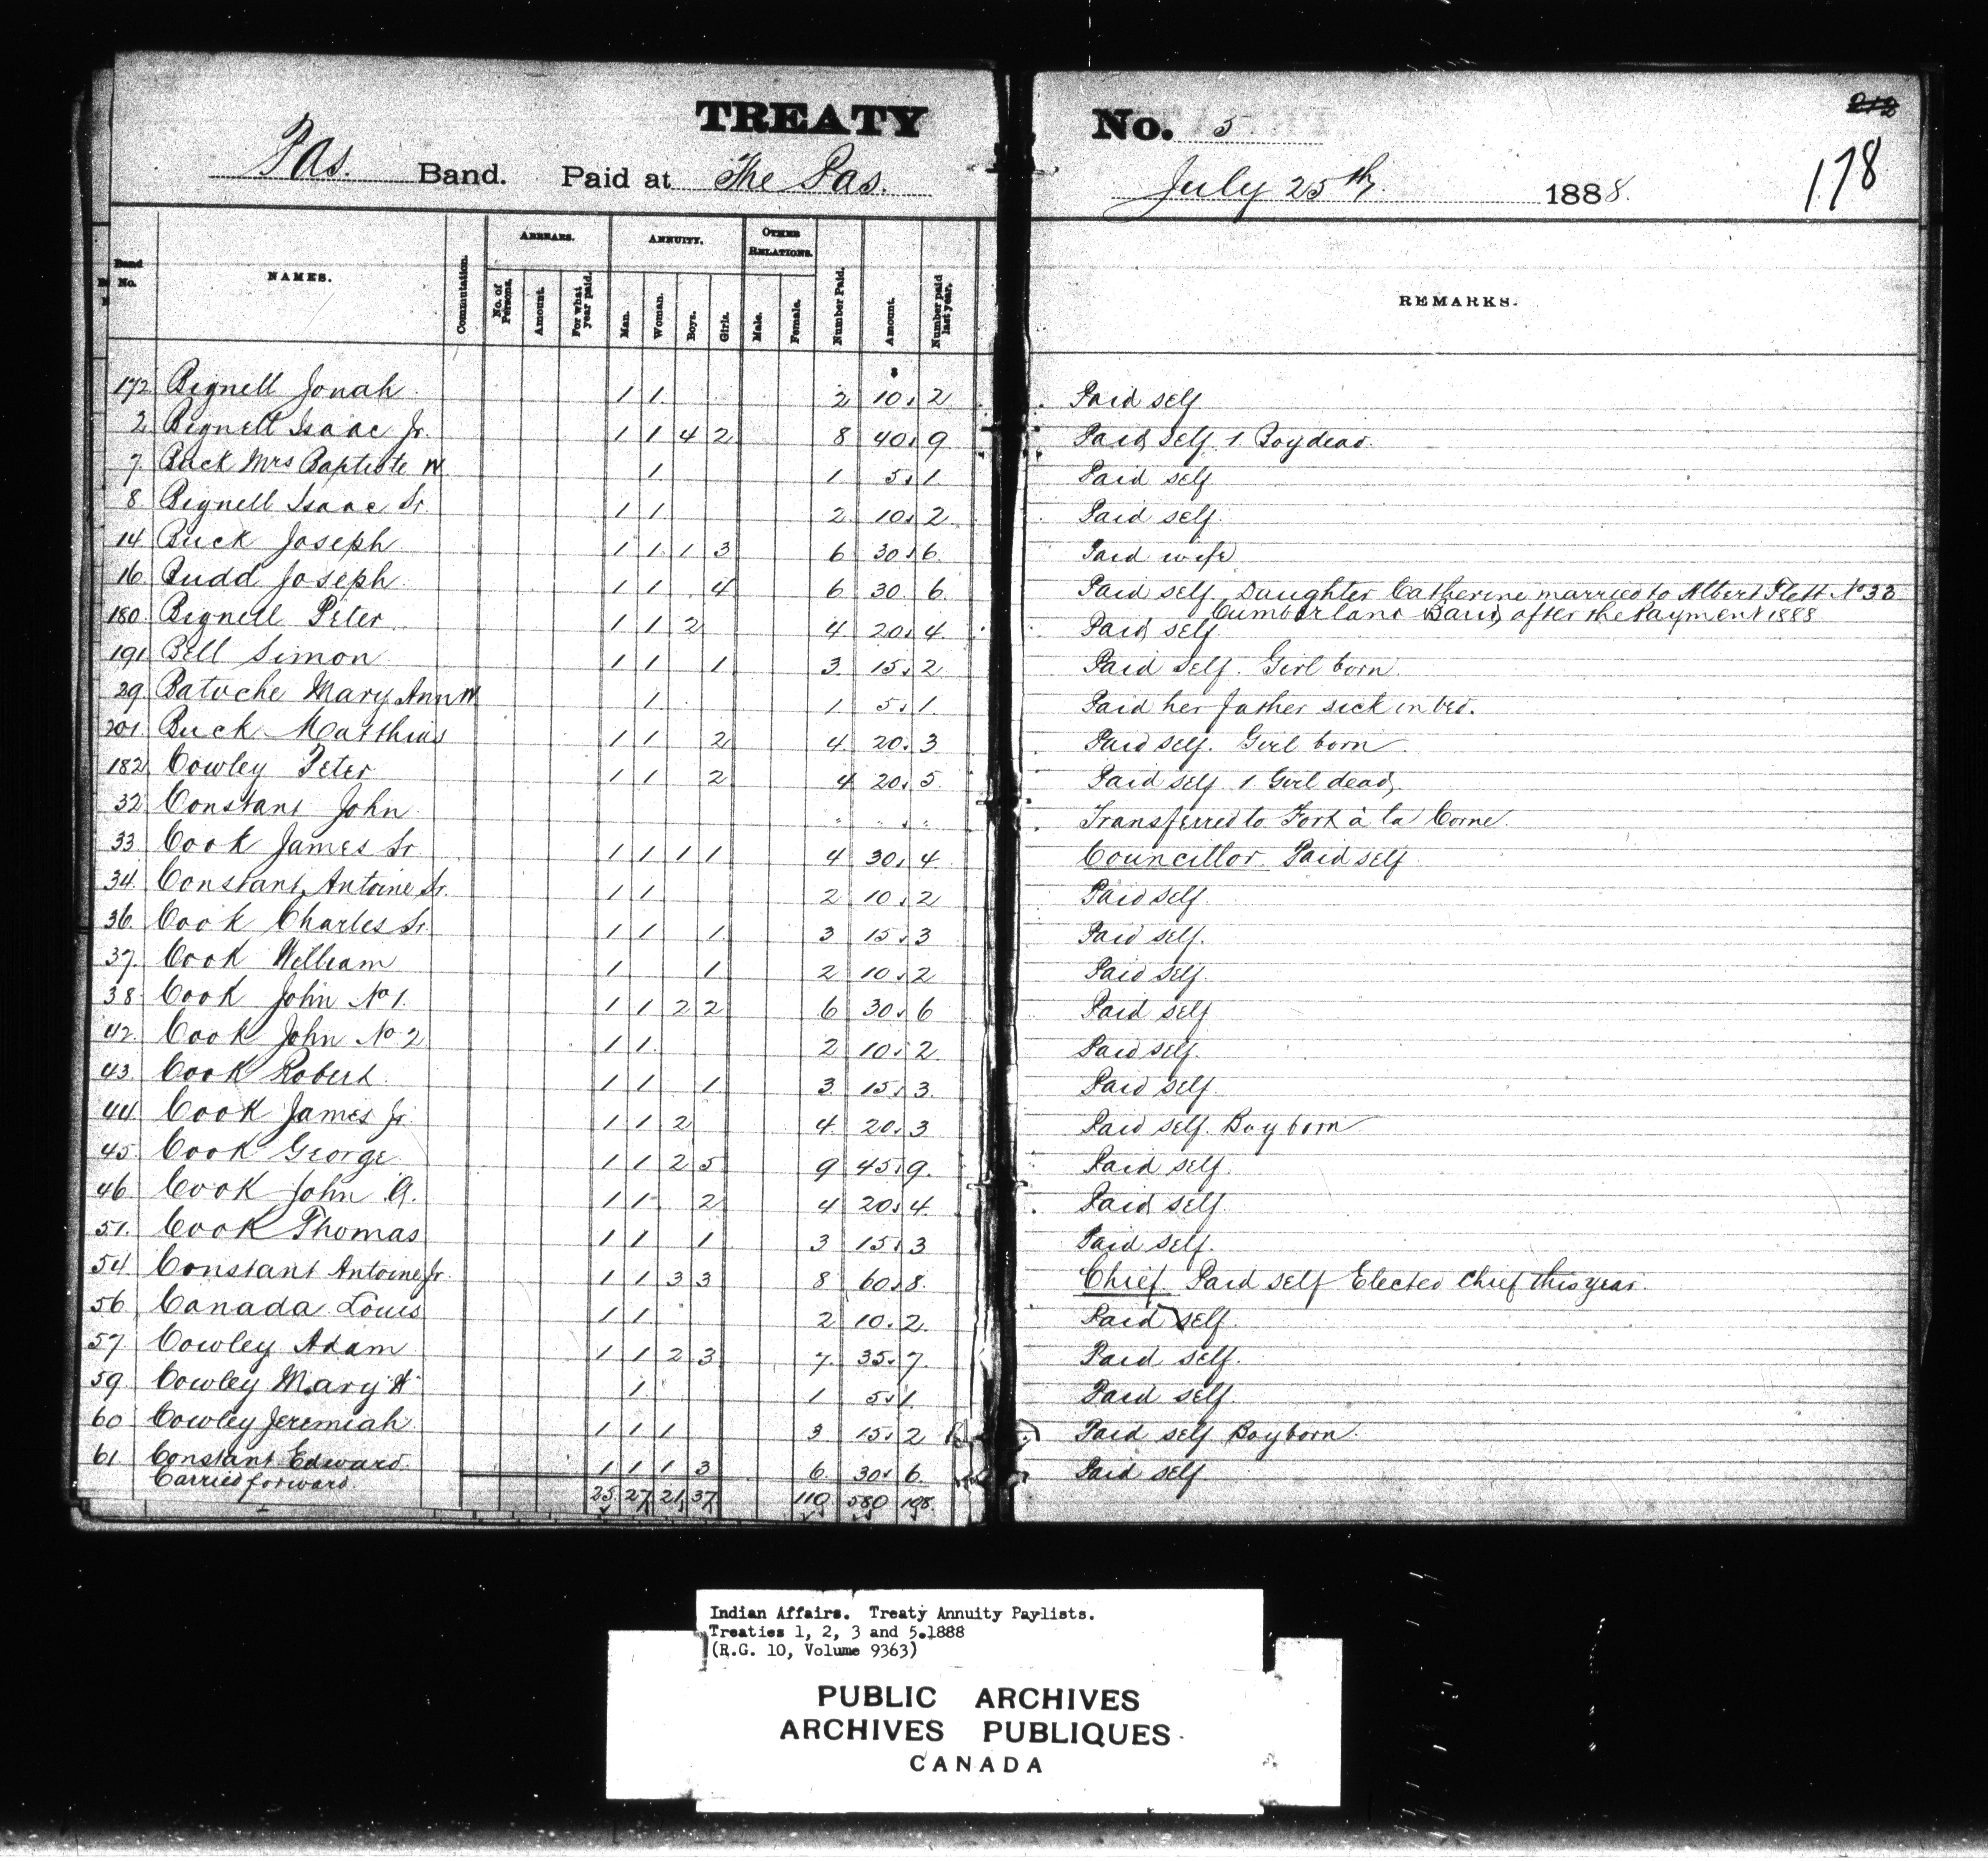 TREATY No. 5
212
178
Pas. Band. Paid at The Pas. July 25th. 1888.
Band No. NAMES. Commutation. ARREARS. No. of Persons. Amount. For what year paid. ANNUITY. Man. Woman. Boys. Girls. OTHER RELATIONS. Male. Female. Number Paid. Amount. Number paid last year. REMARKS.
$
172 Bignell Jonah 1 1 2 10. 2 Paid self
2 Bignell Isaac Jr. 1 1 4 2 8 40. 9 Paid self 1 Boy dead
7 Buck Mrs Baptiste W 1 1 5. 1 Paid self
8 Bignell Isaac Sr. 1 1 2 10. 2 Paid self
14 Buck Joseph 1 1 1 3 6 30. 6 Paid wife
16 Budd Joseph 1 1 4 6 30 6 Paid self Daughter Catherine married to Albert Flett No 33
Cumberland Band after the Payment 1888
180 Bignell Peter 1 1 2 4 20. 4 Paid self
191 Bell Simon 1 1 1 3 15. 2 Paid self. Girl born
29 Batoche Mary Ann W 1 1 5. 1 Paid her father sick in bed.
201 Buck Matthias 1 1 2 4 20. 3 Paid self. Girl born
182 Cowley Peter 1 1 2 4 20. 5 Paid self 1 Girl dead,
32 Constant John " " . " Transferred to Fort à la Corne
33 Cook James Sr 1 1 1 1 4 30. 4 Councillor Paid self
34 Constant Antoine Sr. 1 1 2 10. 2 Paid self.
36 Cook Charles Sr. 1 1 1 3 15. 3 Paid self.
37 Cook William 1 1 2 10. 2 Paid self.
38 Cook John No 1. 1 1 2 2 6 30. 6 Paid self
42 Cook John No 2 1 1 2 10. 2 Paid self.
43 Cook Robert 1 1 1 3 15. 3 Paid self
44 Cook James Jr. 1 1 2 4 20. 3 Paid self. Boy born
45 Cook George 1 1 2 5 9 45. 9. Paid self.
46 Cook John A. 1 1 2 4 20. 4 Paid self
51. Cook Thomas 1 1 1 3 15. 3 Paid self.
54 Constant Antoine Jr. 1 1 3 3 8 60. 8. Chief Paid self Elected Chief this year.
56 Canada Louis 1 1 2 10. 2. Paid self.
57 Cowley Adam 1 1 2 3 7. 35. 7. Paid self.
59 Cowley Mary W 1 1 5. 1. Paid self
60 Cowley Jeremiah 1 1 1 3 15. 2 Paid self Boy born.
61 Constant Edward. 1 1 1 3 6 30. 6 Paid self
Carried forward 25 27 21 37 110 580 108
Indian Affairs. Treaty Annuity Paylists.
Treaties 1, 2, 3 and 5.1888
(R.G. 10, Volume 9363)
PUBLIC ARCHIVES
ARCHIVES PUBLIQUES
CANADA